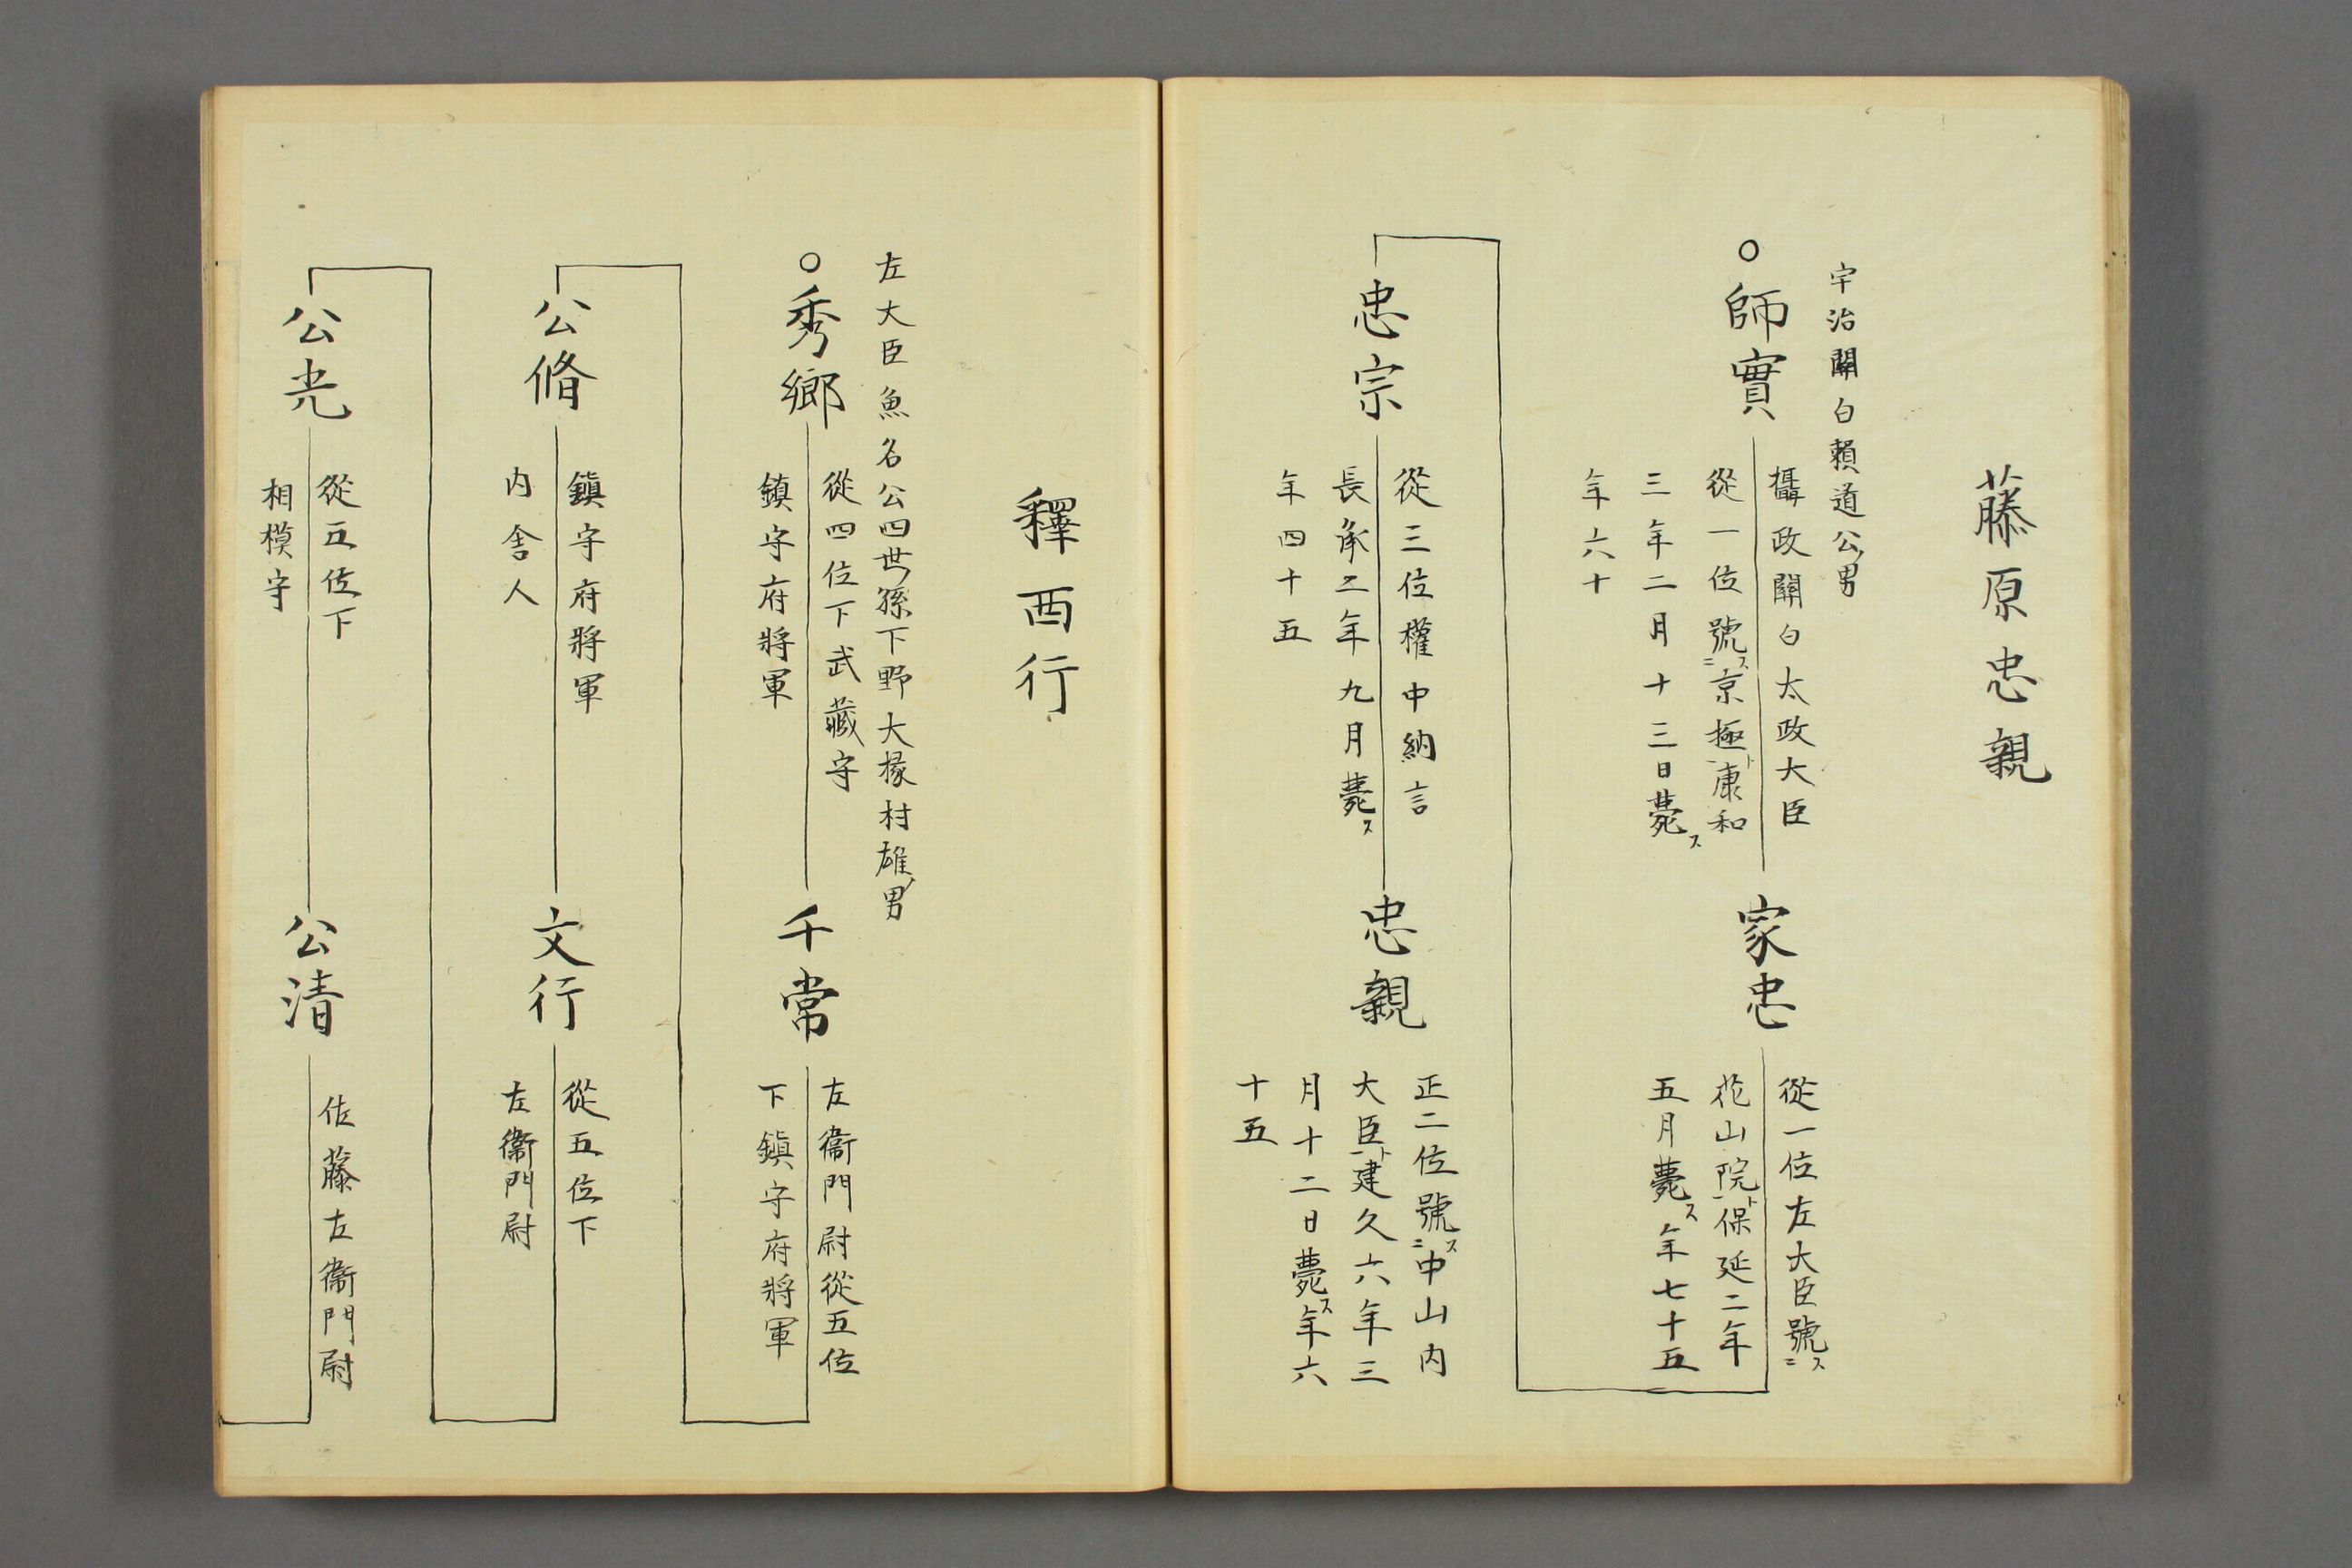 藤原忠親
宇治關白賴道公ノ男
○師實
攝政關白太政大臣
從一位號ス二京極一ト康和
三年二月十三日薨ス
年六十
家忠
從一位左大臣號ス二
花山院一ト保延二年
五月薨ス年七十五
忠宗
從三位權中納言
長承二年九月薨ス
年四十五
忠親
正二位號ス二中山内
大臣一ト建久六年三
月十二日薨ス年六
十五
釋西行
左大臣魚名公四世ノ孫下野大掾村雄ノ男
○秀鄉
從四位下武藏守
鎮守府將軍
千常
左衞門尉從五位
下鎮守府將軍
公脩
鎮守府將軍
内舍人
文行
從五位下
左衞門尉
公光
從五位下
相模守
公清
佐藤左衞門尉